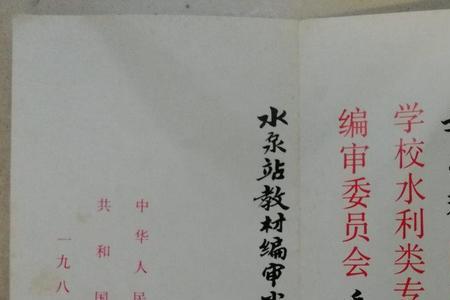 学校水利类专
编审委员会
水泵站教材编审
中华人民
共和国
一九八